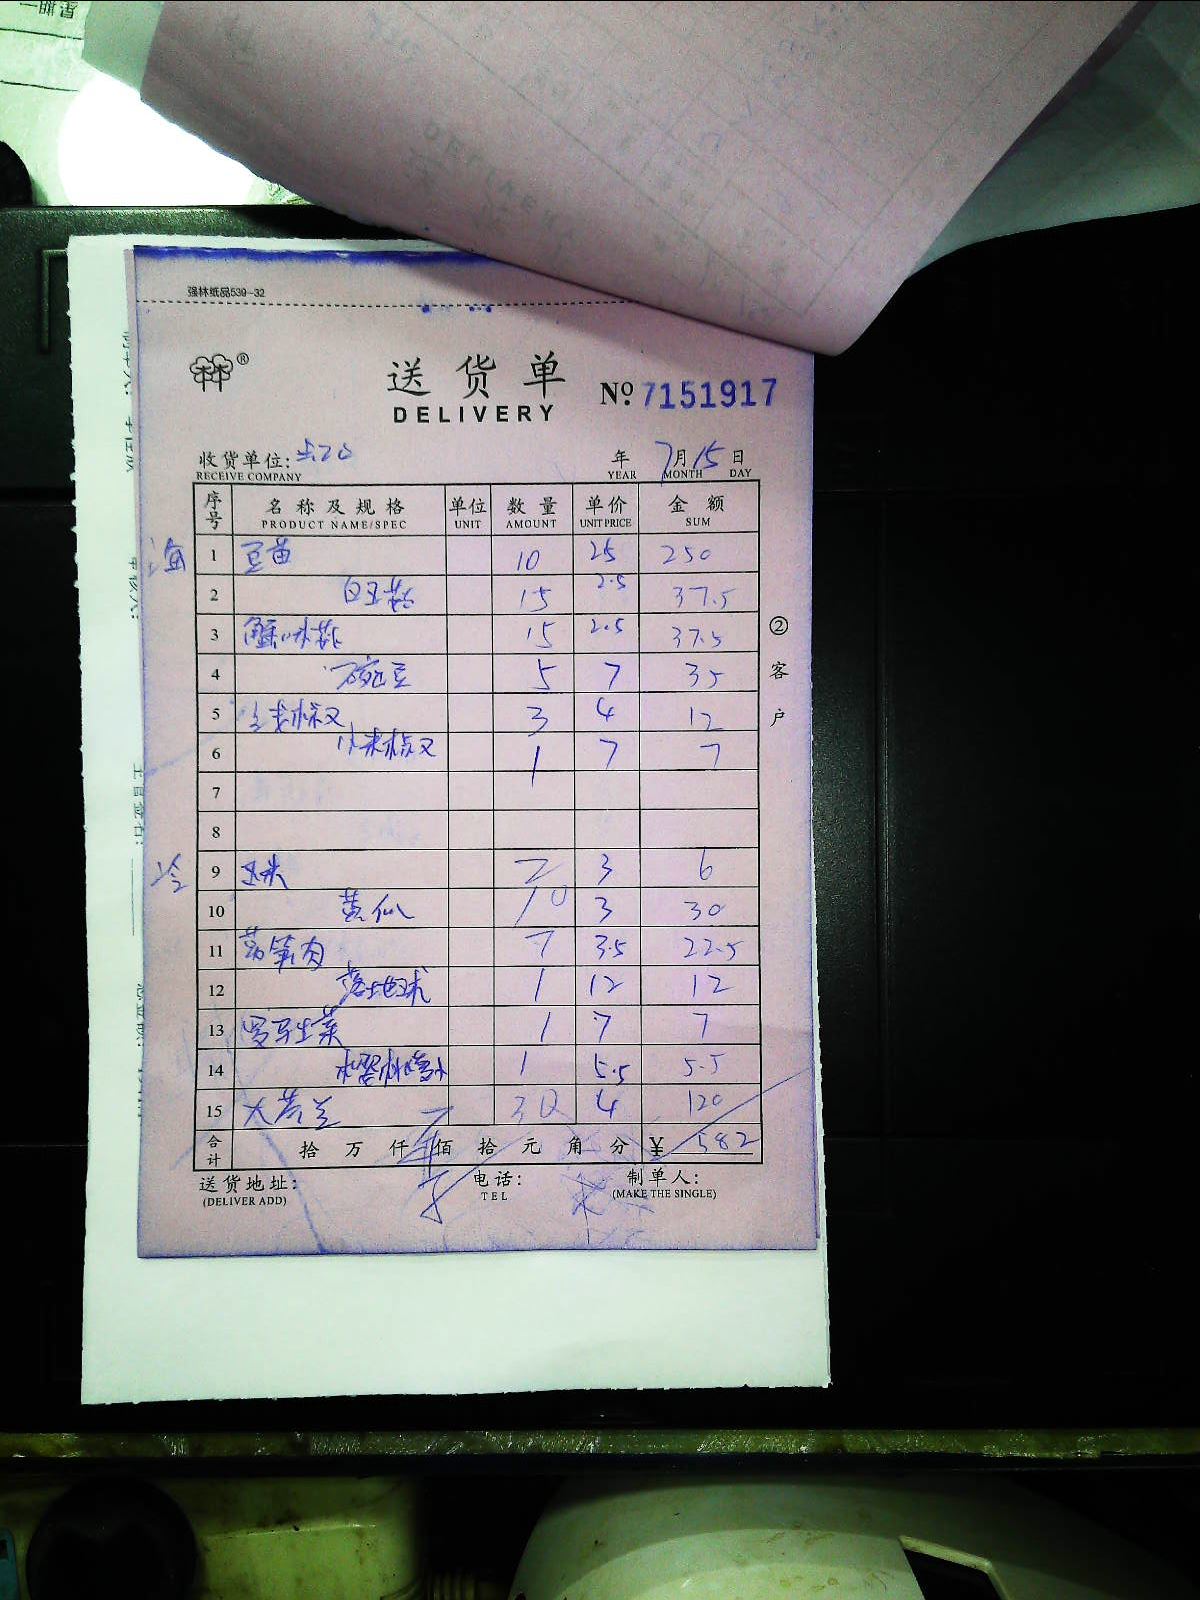 强林纸品539-32
送货单
DELIVERY
№ 7151917
收货单位:
RECEIVE COMPANY
年 7月15日
YEAR MONTH DAY
序号 名称及规格 单位 数量 单价 金额
PRODUCT NAME/SPEC UNIT AMOUNT UNIT PRICE SUM
海 1 豆苗 10 25 250
2 白玉菇 15 2.5 37.5
3 蟹味菇 15 2.5 37.5
4 碗豆 5 7 35
5 3 4 12
6 小米椒 1 7 7
7
8
冷 9 玉米 2 3 6
10 黄 10 3 30
11 莴笋肉 7 3.5 22.5
12 落地球 1 12 12
13 罗马生菜 1 7 7
14 1 5.5 5.5
15 大 30 4 120
合计 拾 万 仟 佰 拾 元 角 分 ¥ 582
送货地址:
(DELIVER ADD)
电话:
TEL
制单人:
(MAKE THE SINGLE)
②客户